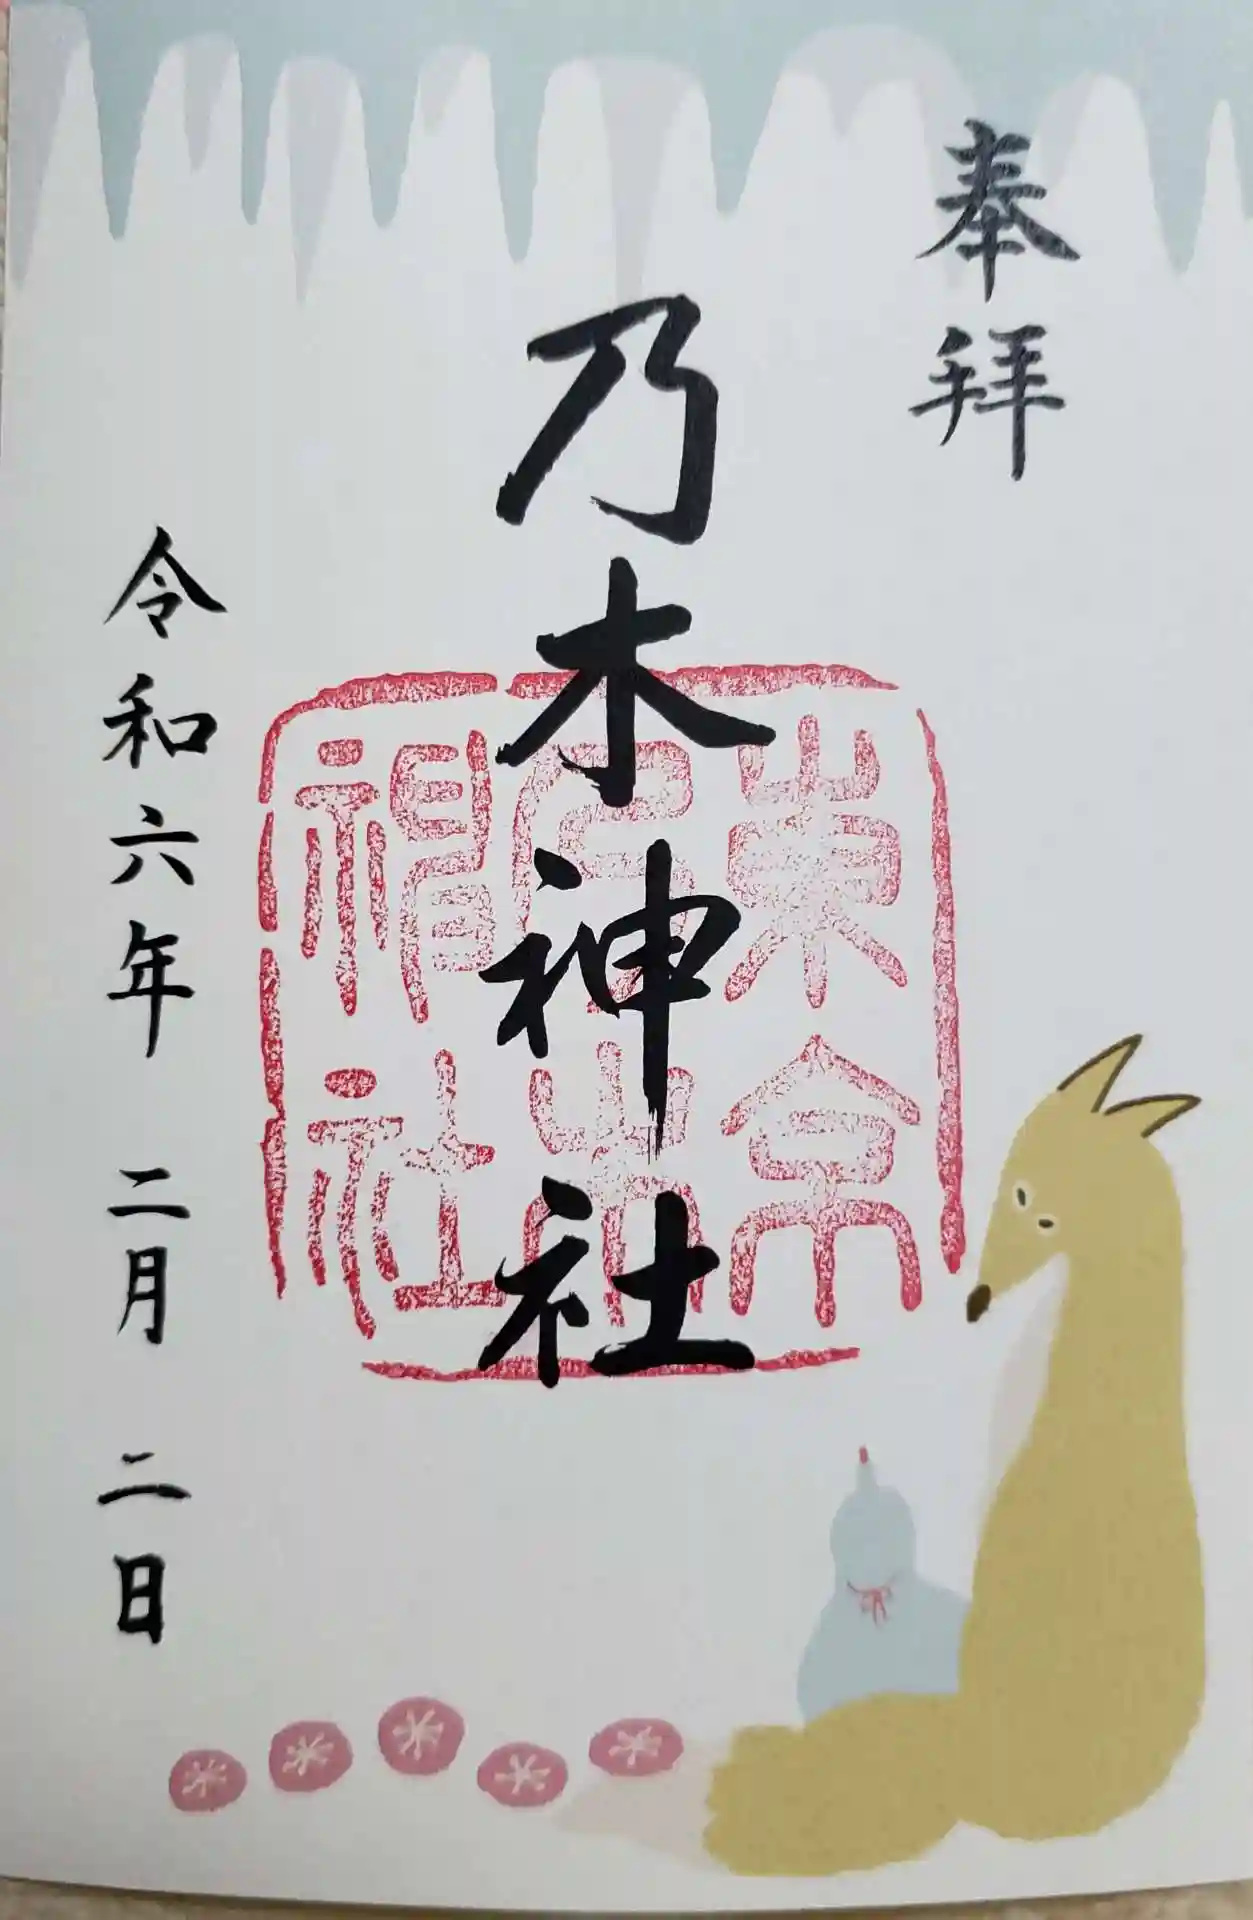 奉拝
乃木神社
令和六年 二月 二日